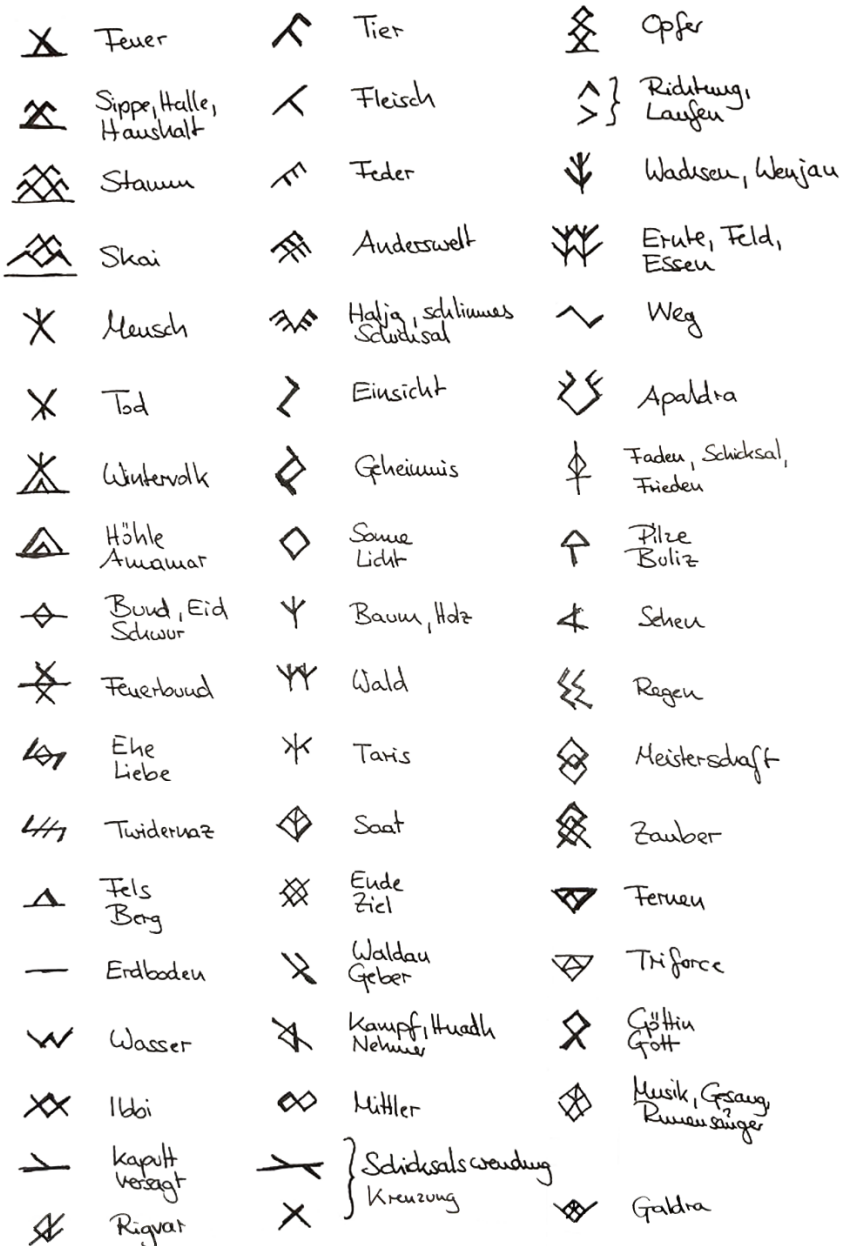 Feuer
Sippe, Halle,
Haushalt
Stamm
Skai
Mensch
Tod
Wintervolk
Höhle
Amamar
Bund, Eid
Schwur
Feuerbund
Ehe
Liebe
Twidernaz
Fels
Berg
Erdboden
Wasser
Ibbi
Kaputt
versagt
Rigvar
Tier
Fleisch
Feder
Anderswelt
Halja, schlimmes
Schicksal
Einsicht
Geheimnis
Sonne
Licht
Baum, Holz
Wald
Taris
Saat
Ende
Ziel
Waldau
Geber
Kampf, Huadh
Nehmer
Mittler
Schicksalswendung
Kreuzung
Opfer
Richtung,
Laufen
Wachsen, Wenjan
Ernte, Feld,
Essen
Weg
Apaldra
Faden, Schicksal,
Frieden
Pilze
Buliz
Sehen
Regen
Meisterschaft
Zauber
Fernen
Triforce
Göttin
Gott
Musik, Gesang,
Runensänger
Galdra